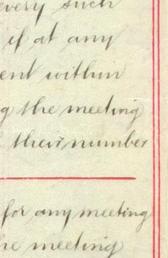 every such
if at any
ent within
g the meeting
their number
for any meeting
he meeting